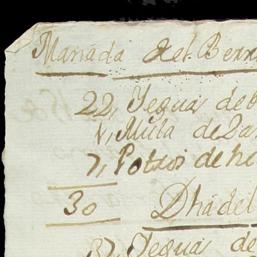 Manada del Berr
22, Yeguas de b
1, Mula de 2 a
7, Potros de he
30 Dha del
37, Yeguas de